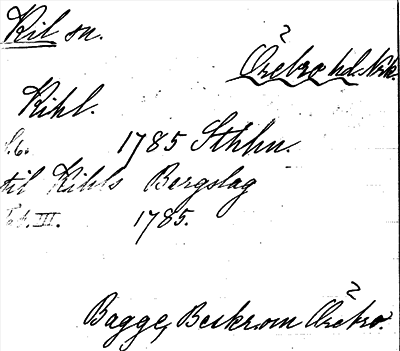 Kil sn.
Örebro hd. Nrk.
Kihl.
1785 Sthlm.
til Kihls Bergslag
III. 1785.
Bagge, Beskr. om Örebro.